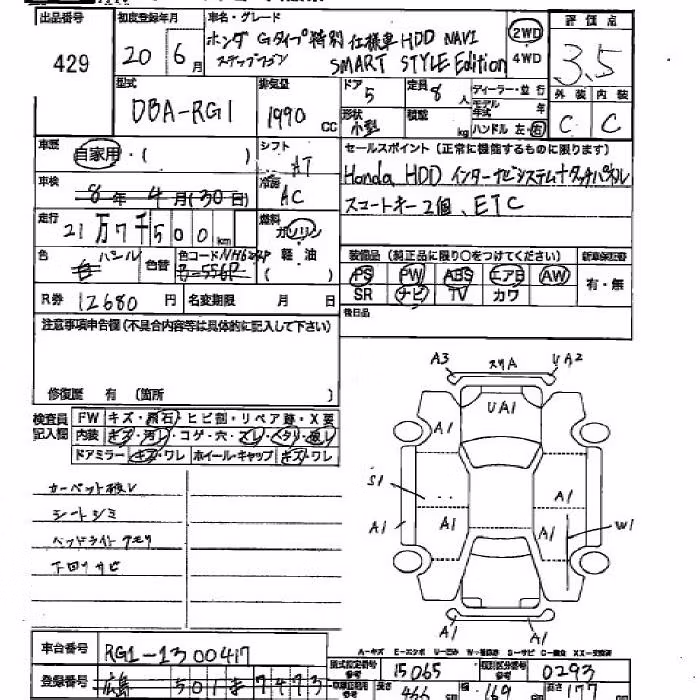 出品番号 初度登録年月 車名・グレード 評価点
429 20年 6月 ホンダ Gタイプ特別仕様車 HDD NAVI 2WD 3.5
ステップワゴン SMART STYLE Edition 4WD
型式 排気量 ドア 定員 ディーラー・並行 外装 内装
DBA-RG1 1990 CC 5 8人 モデル年式 年 C C
形状 小型 積載 kg ハンドル 左・右
車歴 シフト セールスポイント(正常に機能するものに限ります)
自家用・( ) AT Honda HDD インターナビシステム+タッチパネル
車検 冷房
8年 4月(30日) AC スマートキー2個、ETC
走行 燃料
21万7千500km ガソリン 装備品(純正品に限り○をつけてください) 新車保証書
色 パール 色替 色コード 軽油 PS PW ABS エアB AW 有・無
( ) SR ナビ TV カワ
R券 12680円 名変期限 月 日 後日品
注意事項申告欄(不具合内容等は具体的に記入して下さい)
修復歴 有 (箇所 )
検査員記入欄 FW キズ・飛石・ヒビ割・リペア跡・X要
内装 キズ・汚レ・コゲ・穴・スレ・ヘタリ・破レ
ドアミラー キズ・ワレ ホイール・キャップ キズ・ワレ
A3 スリA UA2
UA1
A1 A1
S1 A1
A1 A1 A1 W1
A1 A1
カーペット破レ
シートシミ
ヘッドライトクモリ
下回りサビ
A-キズ E-エクボ U-凹み W-補修跡 S-サビ C-腐食 XX-交換済
車台番号 RG1-1300417 型式指定番号 15065 類別区分番号 0293
登録番号 広島 501 7473 長さ 466 幅 169 高さ 177